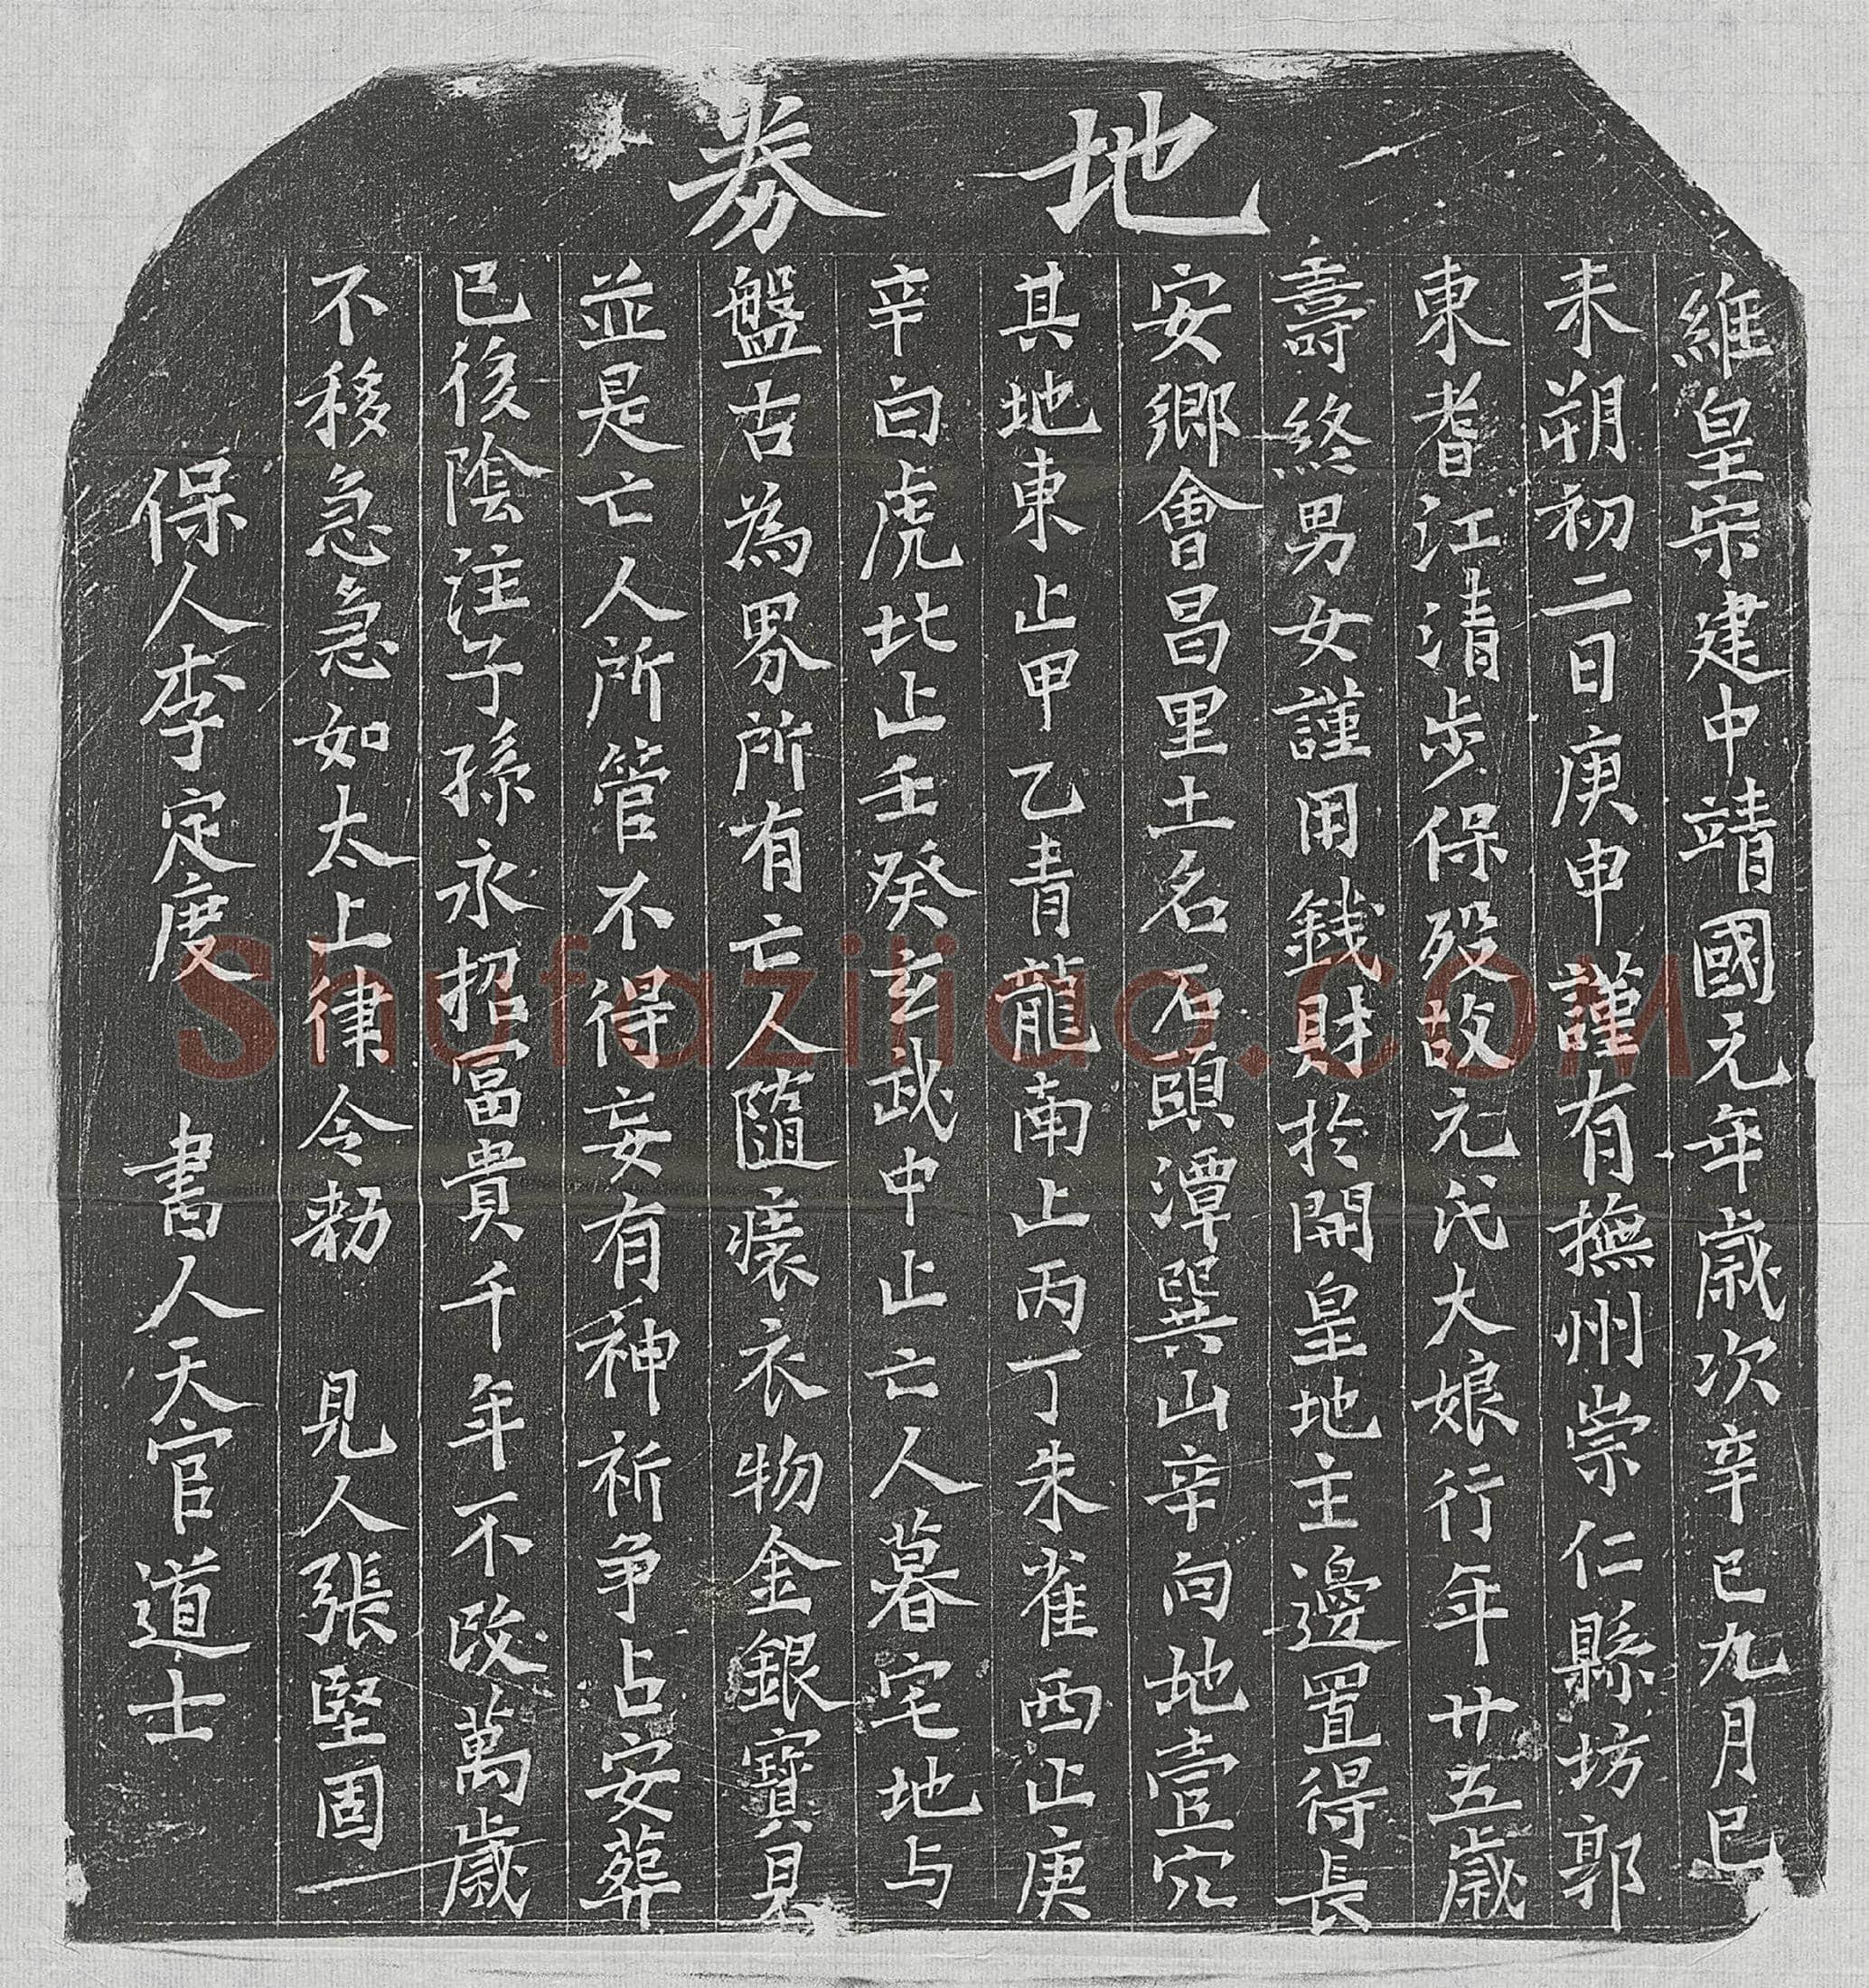 地券
維皇宋建中靖國元年歲次辛巳九月巳
未朔初二日庚申謹有撫州崇仁縣坊郭
東耆江清步保歿故元氏大娘行年廿五歲
壽終男女謹用錢財於開皇地主邊置得長
安鄉會昌里土名石頭潭巽山辛向地壹穴
其地東止甲乙青龍南止丙丁朱雀西止庚
辛白虎北止壬癸玄武中止亡人暮宅地与
盤古為界所有亡人隨瘞衣物金銀寶貝
並是亡人所管不得妄有神祈争占安葬
已後陰注子孫永招富貴千年不改萬歲
不移急急如太上律令勑 見人張堅固
保人李定度 書人天官道士
Shufaziliao.COM